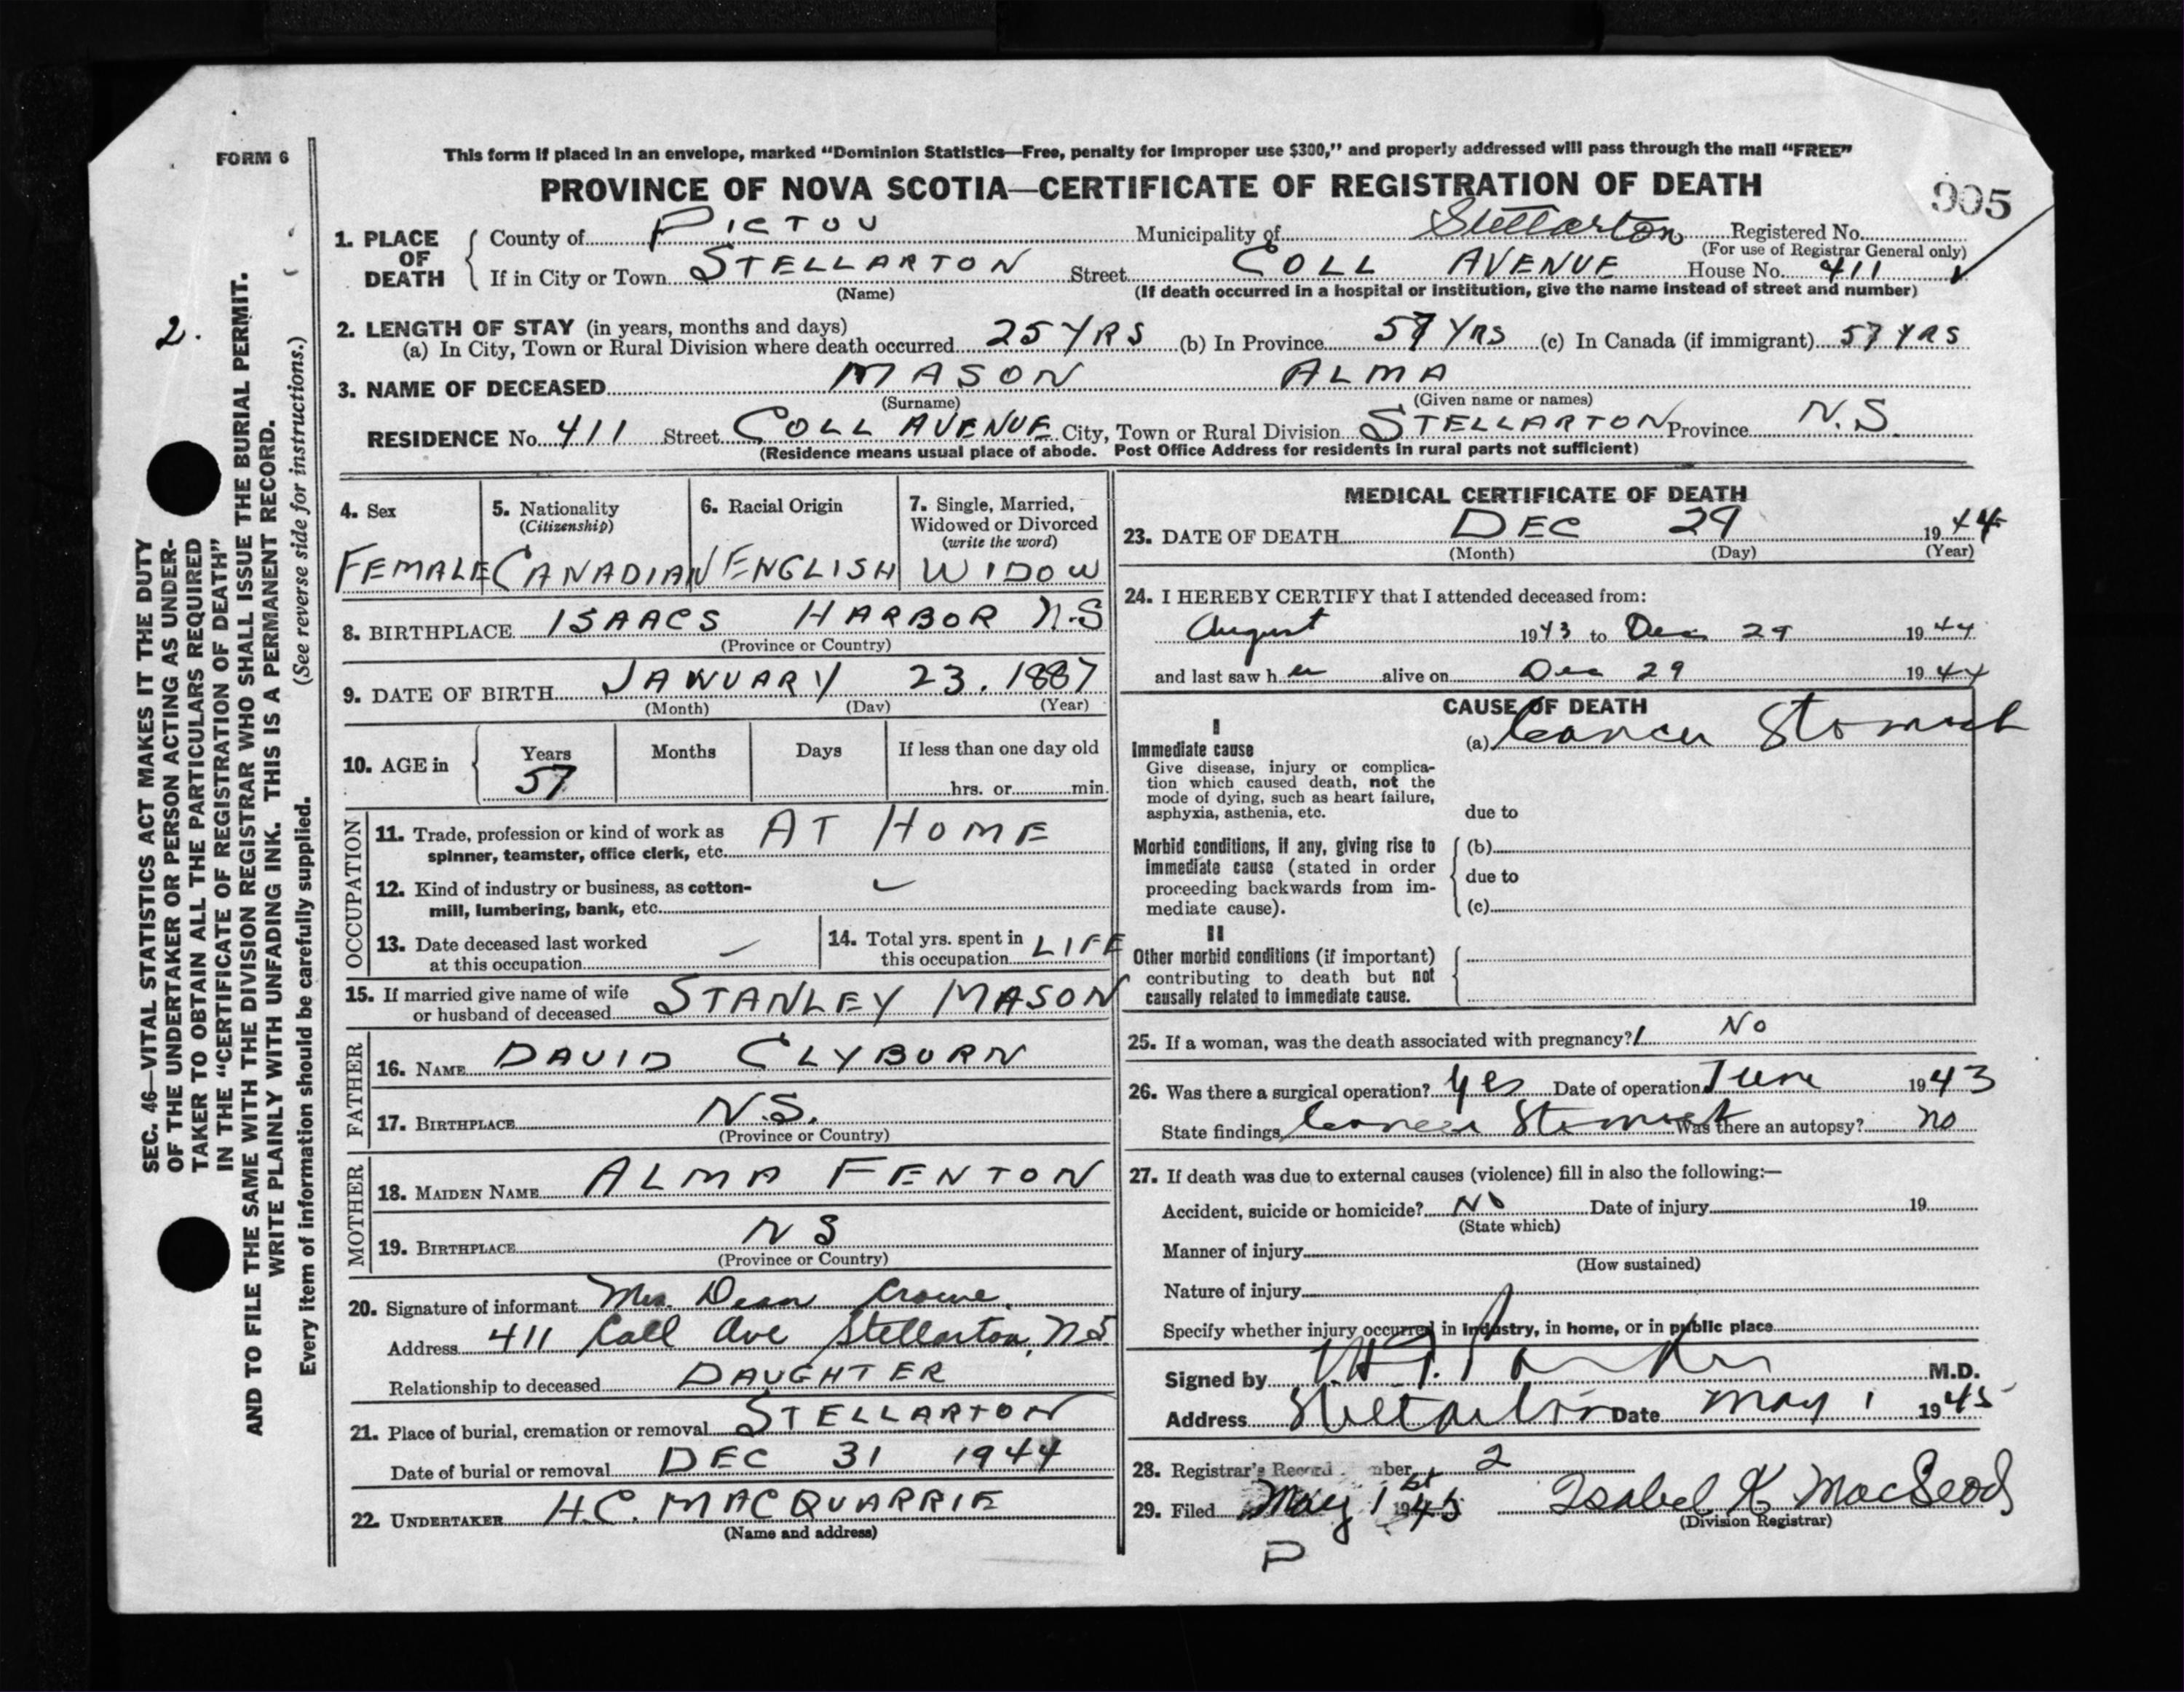 FORM 6
This form if placed in an envelope, marked "Dominion Statistics—Free, penalty for improper use $300," and properly addressed will pass through the mail "FREE"
PROVINCE OF NOVA SCOTIA—CERTIFICATE OF REGISTRATION OF DEATH
905
1. PLACE OF DEATH
County of PICTOU Municipality of Stellarton Registered No.
(For use of Registrar General only)
If in City or Town STELLARTON Street COLL AVENUE House No. 411
(Name) (If death occurred in a hospital or institution, give the name instead of street and number)
2. LENGTH OF STAY (in years, months and days)
(a) In City, Town or Rural Division where death occurred 25 YRS (b) In Province 57 YRS (c) In Canada (if immigrant) 57 YRS
3. NAME OF DECEASED MASON ALMA
(Surname) (Given name or names)
RESIDENCE No. 411 Street COLL AVENUE City, Town or Rural Division STELLARTON Province N.S.
(Residence means usual place of abode. Post Office Address for residents in rural parts not sufficient)
4. Sex
FEMALE
5. Nationality
(Citizenship)
CANADIAN
6. Racial Origin
ENGLISH
7. Single, Married,
Widowed or Divorced
(write the word)
WIDOW
8. BIRTHPLACE ISAACS HARBOR N.S
(Province or Country)
9. DATE OF BIRTH JANUARY 23. 1887
(Month) (Day) (Year)
10. AGE in
Years Months Days If less than one day old
57 hrs. or min.
OCCUPATION
11. Trade, profession or kind of work as
spinner, teamster, office clerk, etc. AT HOME
12. Kind of industry or business, as cotton-
mill, lumbering, bank, etc.
13. Date deceased last worked
at this occupation
14. Total yrs. spent in
this occupation LIFE
15. If married give name of wife
or husband of deceased STANLEY MASON
FATHER
16. NAME DAVID CLYBURN
17. BIRTHPLACE N.S.
(Province or Country)
MOTHER
18. MAIDEN NAME ALMA FENTON
19. BIRTHPLACE N S
(Province or Country)
20. Signature of informant Mrs. Dean Crowe.
Address 411 Coll Ave Stellarton, N.S.
Relationship to deceased DAUGHTER
21. Place of burial, cremation or removal STELLARTON
Date of burial or removal DEC 31 1944
22. UNDERTAKER H.C. MACQUARRIE
(Name and address)
MEDICAL CERTIFICATE OF DEATH
23. DATE OF DEATH DEC 29 1944
(Month) (Day) (Year)
24. I HEREBY CERTIFY that I attended deceased from:
August 1943 to Dec 29 1944
and last saw her alive on Dec 29 1944
CAUSE OF DEATH
I
Immediate cause
Give disease, injury or complica-
tion which caused death, not the
mode of dying, such as heart failure,
asphyxia, asthenia, etc.
(a) Cancer Stomach
due to
Morbid conditions, if any, giving rise to
immediate cause (stated in order
proceeding backwards from im-
mediate cause).
(b)
due to
(c)
II
Other morbid conditions (if important)
contributing to death but not
causally related to immediate cause.
25. If a woman, was the death associated with pregnancy? No
26. Was there a surgical operation? Yes Date of operation June 1943
State findings Cancer Stomach Was there an autopsy? no
27. If death was due to external causes (violence) fill in also the following:—
Accident, suicide or homicide? No Date of injury 19
(State which)
Manner of injury
(How sustained)
Nature of injury
Specify whether injury occurred in industry, in home, or in public place
Signed by M.D.
Address Stellarton Date May 1 1945
28. Registrar's Record Number 2
29. Filed May 1st 1945 Isabel K MacLeod
(Division Registrar)
P
2.
SEC. 46—VITAL STATISTICS ACT MAKES IT THE DUTY
OF THE UNDERTAKER OR PERSON ACTING AS UNDER-
TAKER TO OBTAIN ALL THE PARTICULARS REQUIRED
IN THE "CERTIFICATE OF REGISTRATION OF DEATH"
AND TO FILE THE SAME WITH THE DIVISION REGISTRAR WHO SHALL ISSUE THE BURIAL PERMIT.
WRITE PLAINLY WITH UNFADING INK. THIS IS A PERMANENT RECORD.
Every item of information should be carefully supplied. (See reverse side for instructions.)